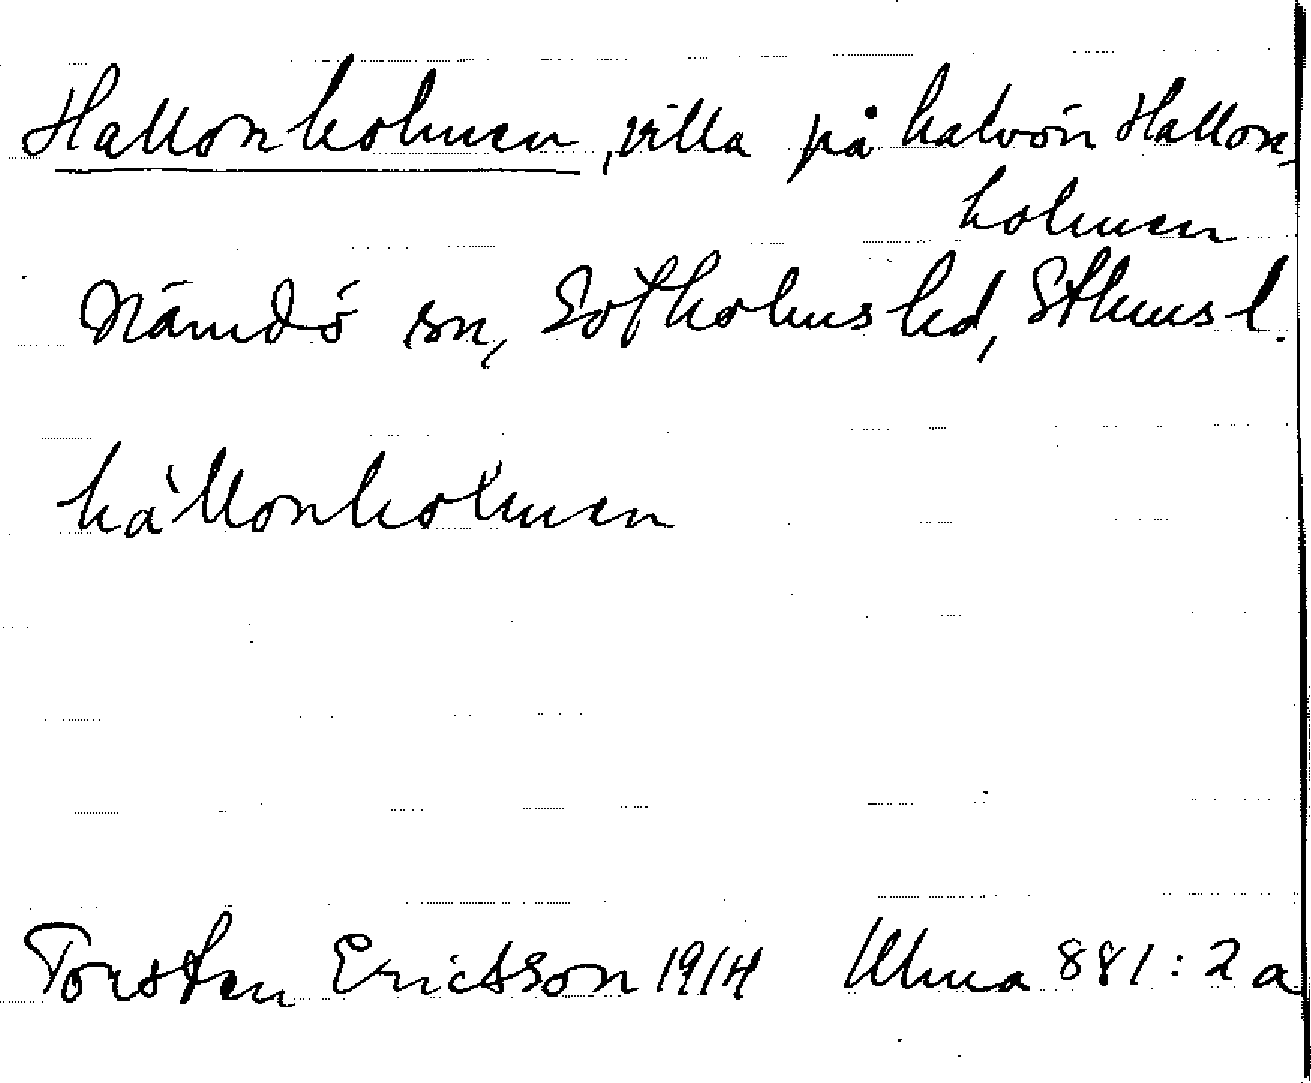 Hallonholmen, villa på halvön Hallon-
holmen
Nämdö sn, Sotholms hd, Sthms l.
hàllonhòlmen
Torsten Ericsson 1914 Ulma 881:2a